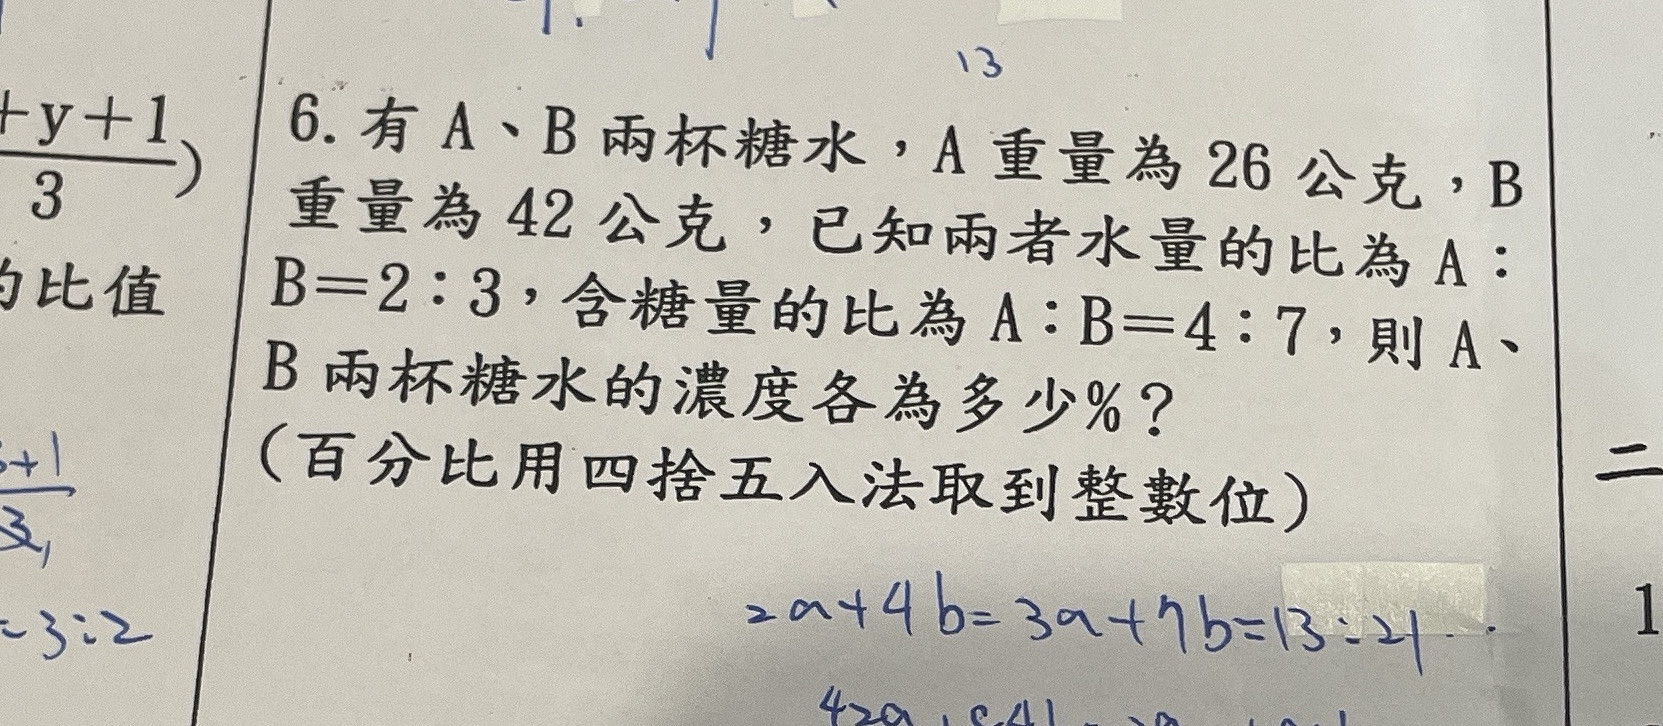 13
+y+1
3
)
的比值
6. 有 A、B 兩杯糖水，A 重量為 26 公克，B
重量為 42 公克，已知兩者水量的比為 A：
B＝2：3，含糖量的比為 A：B＝4：7，則 A、
B 兩杯糖水的濃度各為多少%？
（百分比用四捨五入法取到整數位）
+1
3
=3:2
2a+4b=3a+7b=13:21
二
1